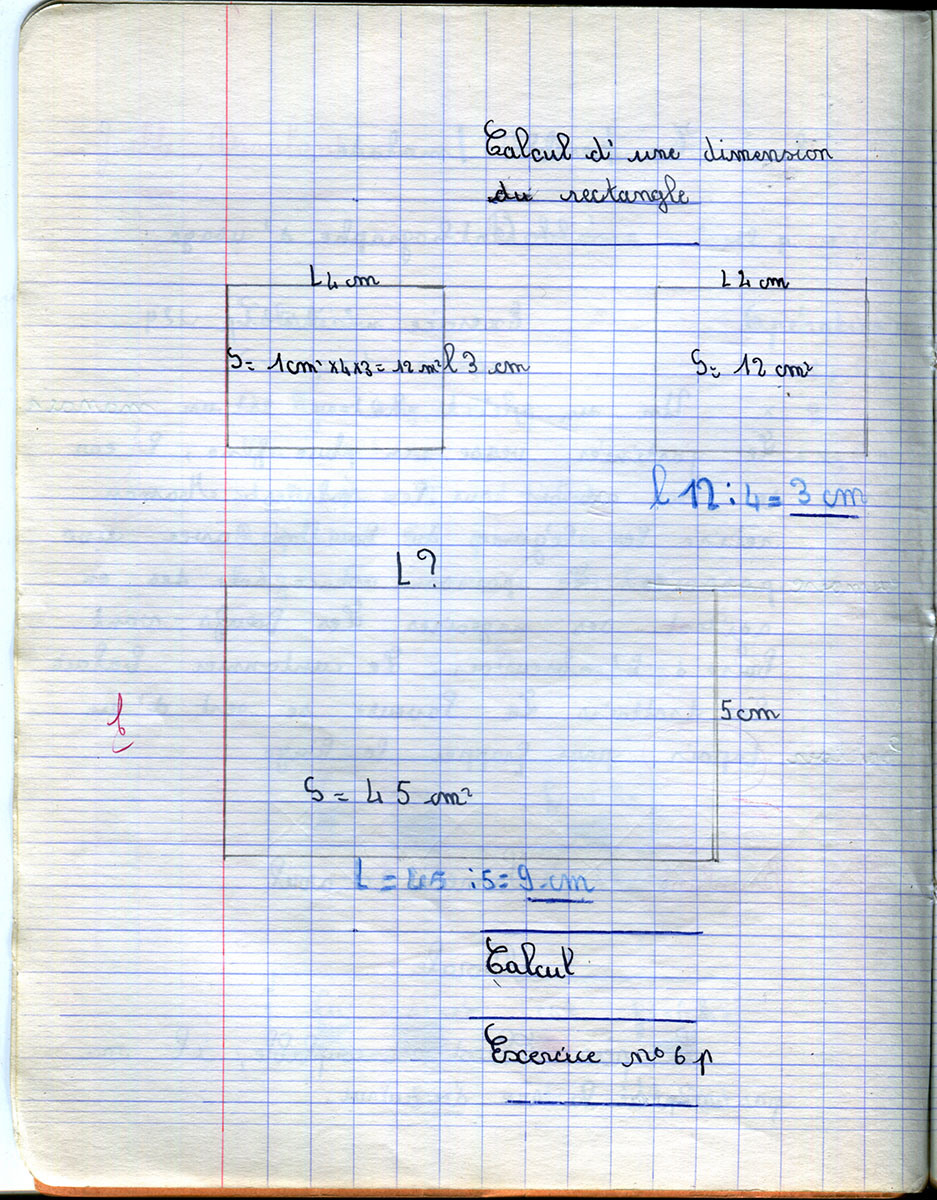 Calcul d'une dimension
du rectangle
L 4 cm
S = 1cm² x4x3 = 12 m² l 3 cm
L 4 cm
S = 12 cm²
l 12 : 4 = 3 cm
L ?
5 cm
S = 45 cm²
L = 45 : 5 = 9 cm
Calcul
Exercice n° 6 p